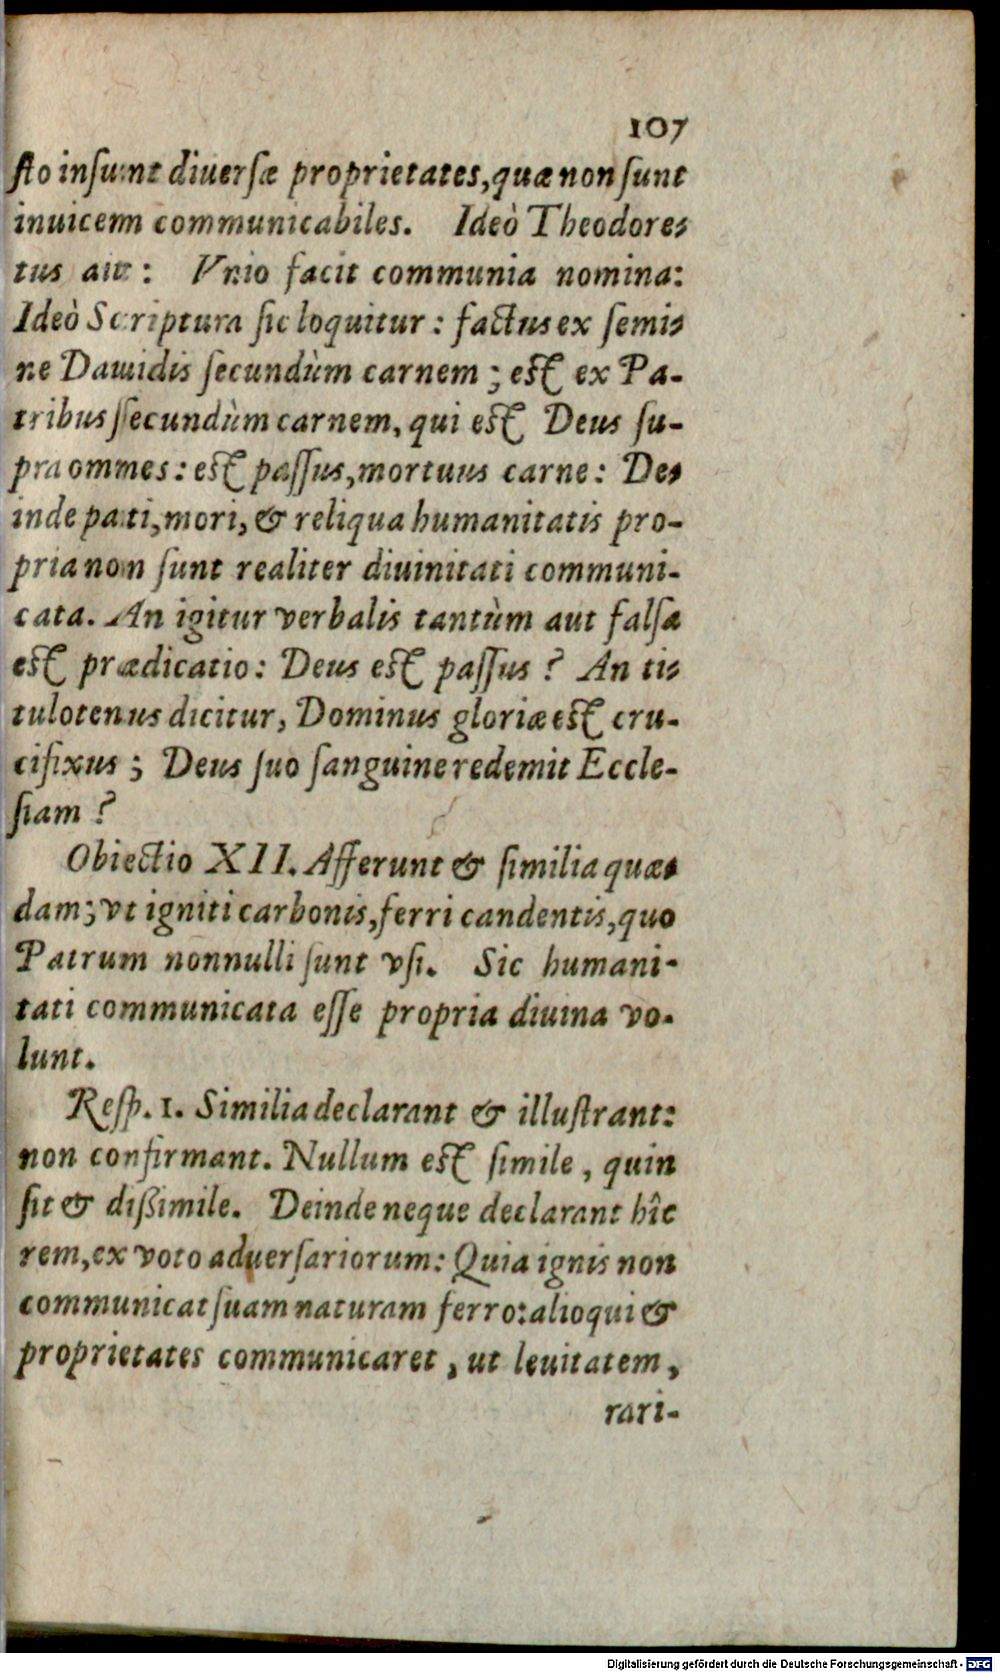 107
sto insunt diuersæ proprietates, quæ non sunt
inuicem communicabiles. Ideò Theodore-
tus ait: Vnio facit communia nomina:
Ideò Scriptura sic loquitur: factus ex semi-
ne Dauidis secundùm carnem; est ex Pa-
tribus secundùm carnem, qui est Deus su-
pra omnes: est passus, mortuus carne: De-
inde pati, mori, & reliqua humanitatis pro-
pria non sunt realiter diuinitati communi-
cata. An igitur verbalis tantùm aut falsa
est prædicatio: Deus est passus? An ti-
tulotenus dicitur, Dominus gloriæ est cru-
cifixus; Deus suo sanguine redemit Eccle-
siam?
Obiectio XII. Afferunt & similia quæ-
dam; vt igniti carbonis, ferri candentis, quo
Patrum nonnulli sunt vsi. Sic humani-
tati communicata esse propria diuina vo-
lunt.
Resp. 1. Similia declarant & illustrant:
non confirmant. Nullum est simile, quin
sit & dißimile. Deinde neque declarant hîc
rem, ex voto aduersariorum: Quia ignis non
communicat suam naturam ferro: alioqui &
proprietates communicaret, ut leuitatem,
rari-
Digitalisierung gefördert durch die Deutsche Forschungsgemeinschaft - DFG